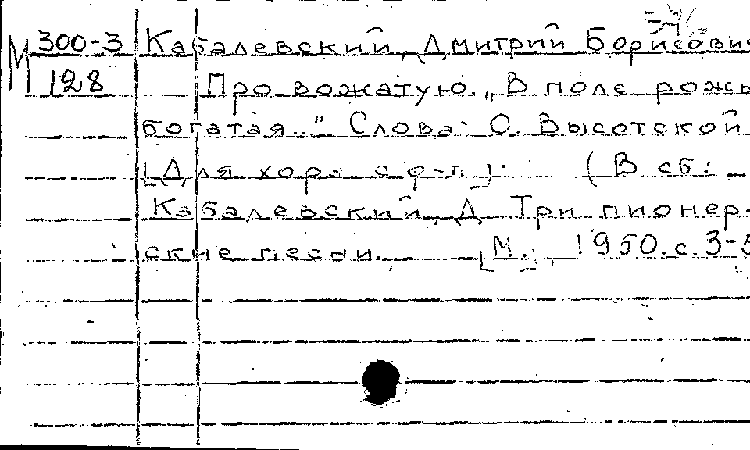 М 300-3 Кабалевский, Дмитрий Борисович
128 Про вожатую. „В поле рожь
богатая..." Слова: О. Высотской
[Для хора с ф-п]. (В сб:
Кабалевский, Д. Три пионер-
ские песни. [М.], 1950. с. 3-5